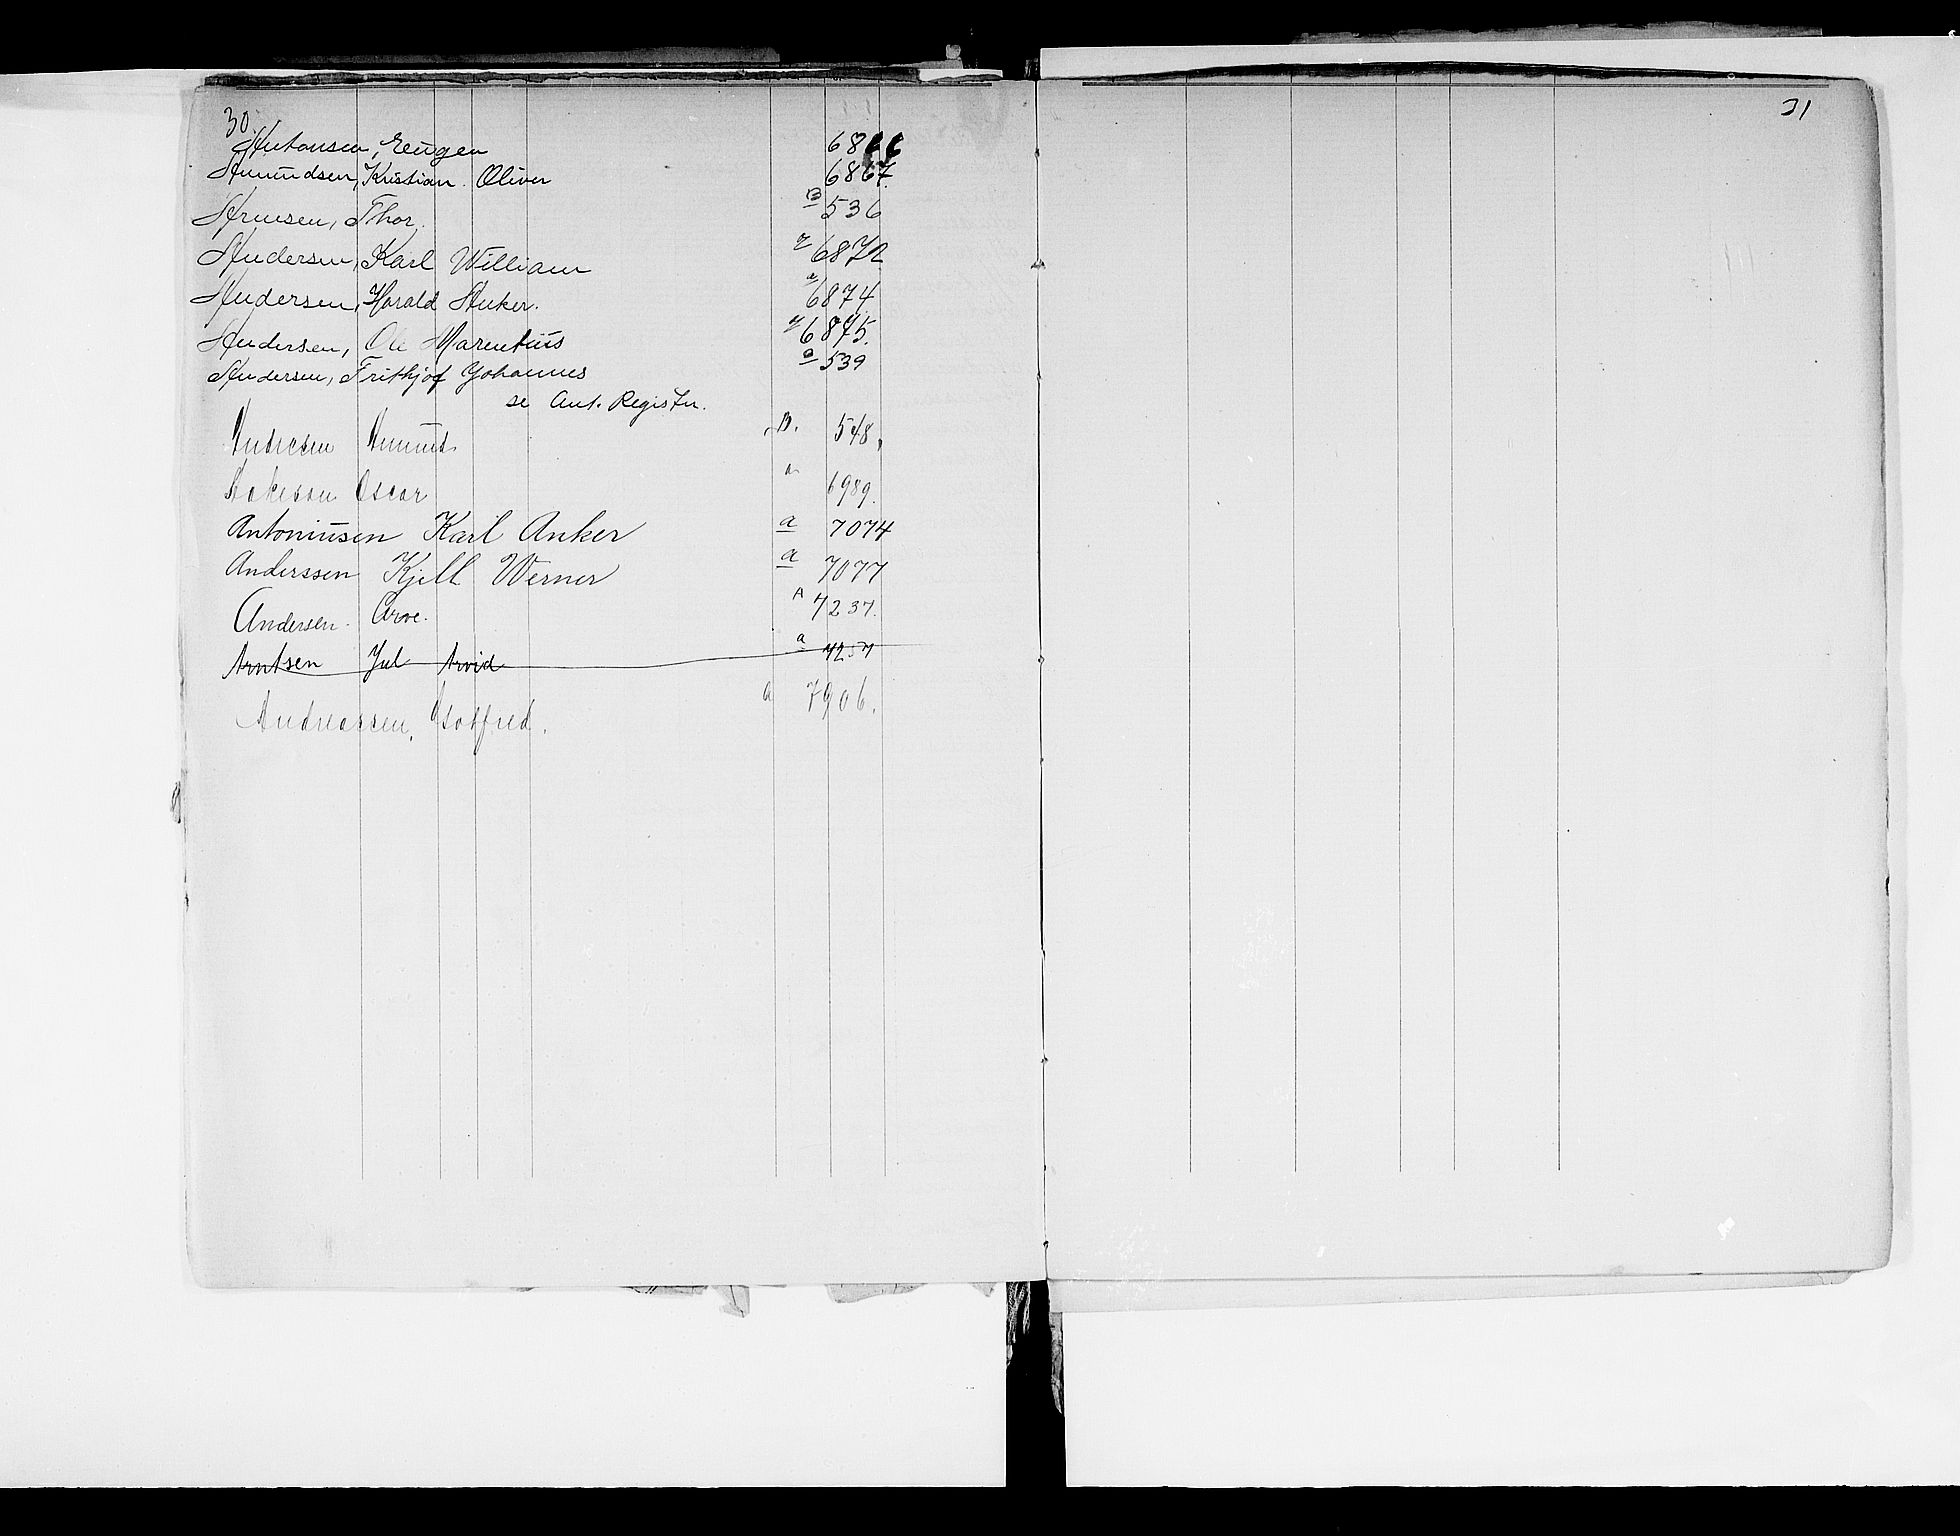 30.
Antonsen, Eugen 6866
Amundsen, Kristian Oliver 6867.
Arnesen, Thor. B 536
Andersen, Karl William a 6872
Andersen, Harald Anker. a 6874
Andersen, Ole Marentius a 6875.
Andersen, Frithjof Johannes a 539
se Ant. Register.
Andresen Amund B. 548,
Aakeson Oscar a 6989.
Antoniusen Karl Anker a 7074
Anderssen Kjell Werner a 7077
Andersen. Arve. A 7237.
Arntsen Jul Arvid a 7257
Andreassen, Gotfred. a 7906.
31